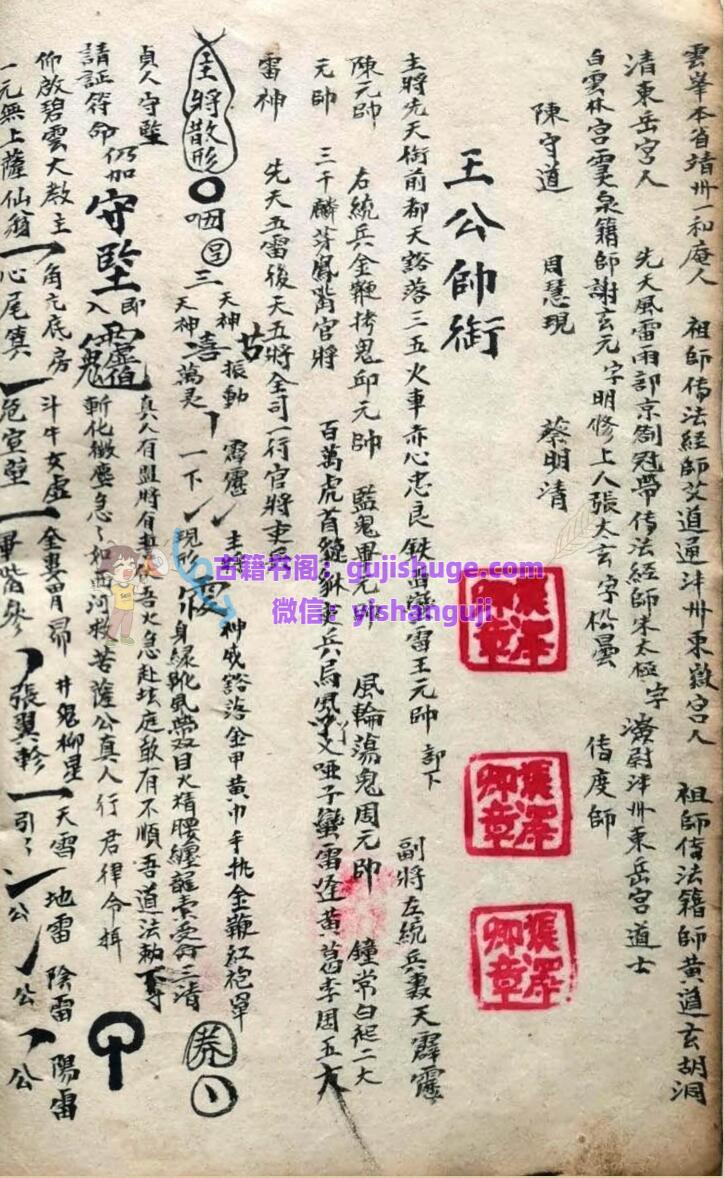 雲峯本省靖卅一和庵人 祖師傳法經師艾道通沣卅東嶽宮人 祖師傳法籍師黄道玄胡洞
清東岳宮人 先天風雷雨部京劄冠帶傳法經師宋太極 字 沣卅東岳宮道士
白雲林宮 泉籍師謝玄元 字明修 上人張太玄 字松曇 傳度師
陳守道 周慧現 蔡明清
王公帥銜
主將先天衙前都天豁落三五火車赤心忠良鉄面 雷王元帥 部下 副將左統兵婁天霹靂
陳元帥 右統兵金鞭拷鬼邱元帥 監鬼畢元帥 風輪蕩鬼周元帥 鐘常白起二大
元帥 三千麟牙鳳觜官將 百萬虎首 兵烏風 文啞子蠻雷 黄葛李周五大
雷神 先天五雷後天五將全司一行官將吏兵
主將散形 咽 三 天神 天神 振動 萬灵 霹靂 一下 主將 現形 神威豁落金甲黄巾手执金鞭紅袍單
身緑靴風帶双目火精腰纏 索受命三清
貞人守壂 真人有盟將有 吾火急赴坛庭敢有不順吾道法勅
請証符命 仍加 守壂 即入 斬化微塵急々如西河救苦薩公真人行君律令揖
仰啟碧雲大教主 角亢底房 斗牛女虚 奎婁胃昴 井鬼柳星 天雪 地雷 陰雷 陽雷
一元無上薩仙翁 心尾箕 危室壁 畢觜參 張翼軫 引 公 公 公
張澤卿章
張澤卿章
張澤卿章
古籍书阁：gujishuge.com
微信：yishanguji